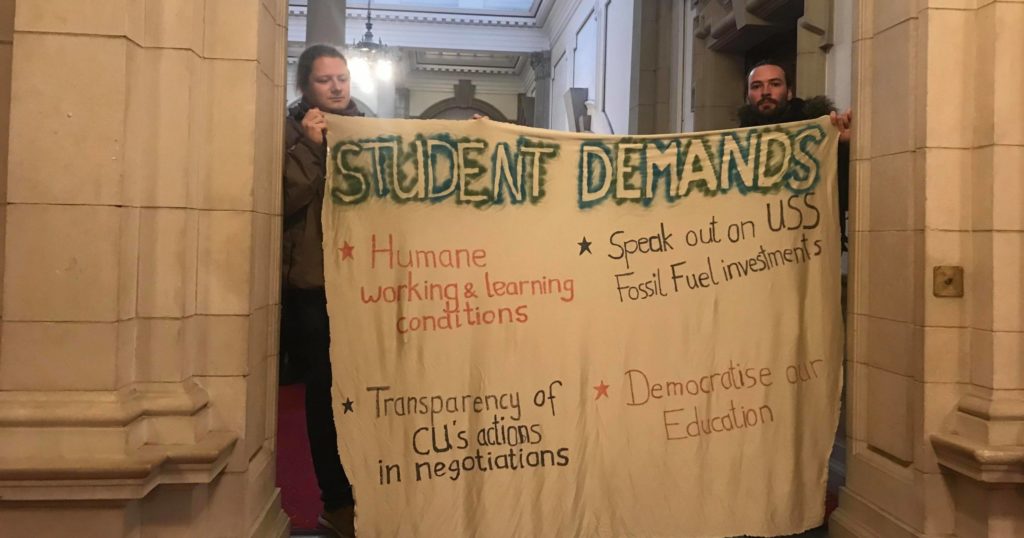 STUDENT DEMANDS
★ Humane
working & learning
conditions
★ Speak out on USS
Fossil Fuel investments
★ Transparency of
CU's actions
in negotiations
★ Democratise our
Education